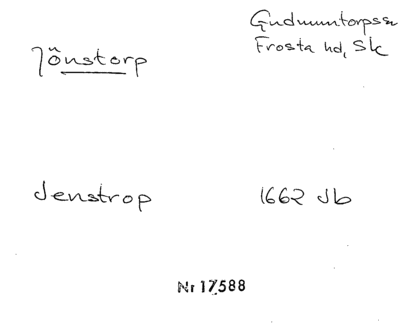 Gudmuntorps sn
Frosta hd, Sk
Jönstorp
Jenstrop 1662 Jb
Nr 17588